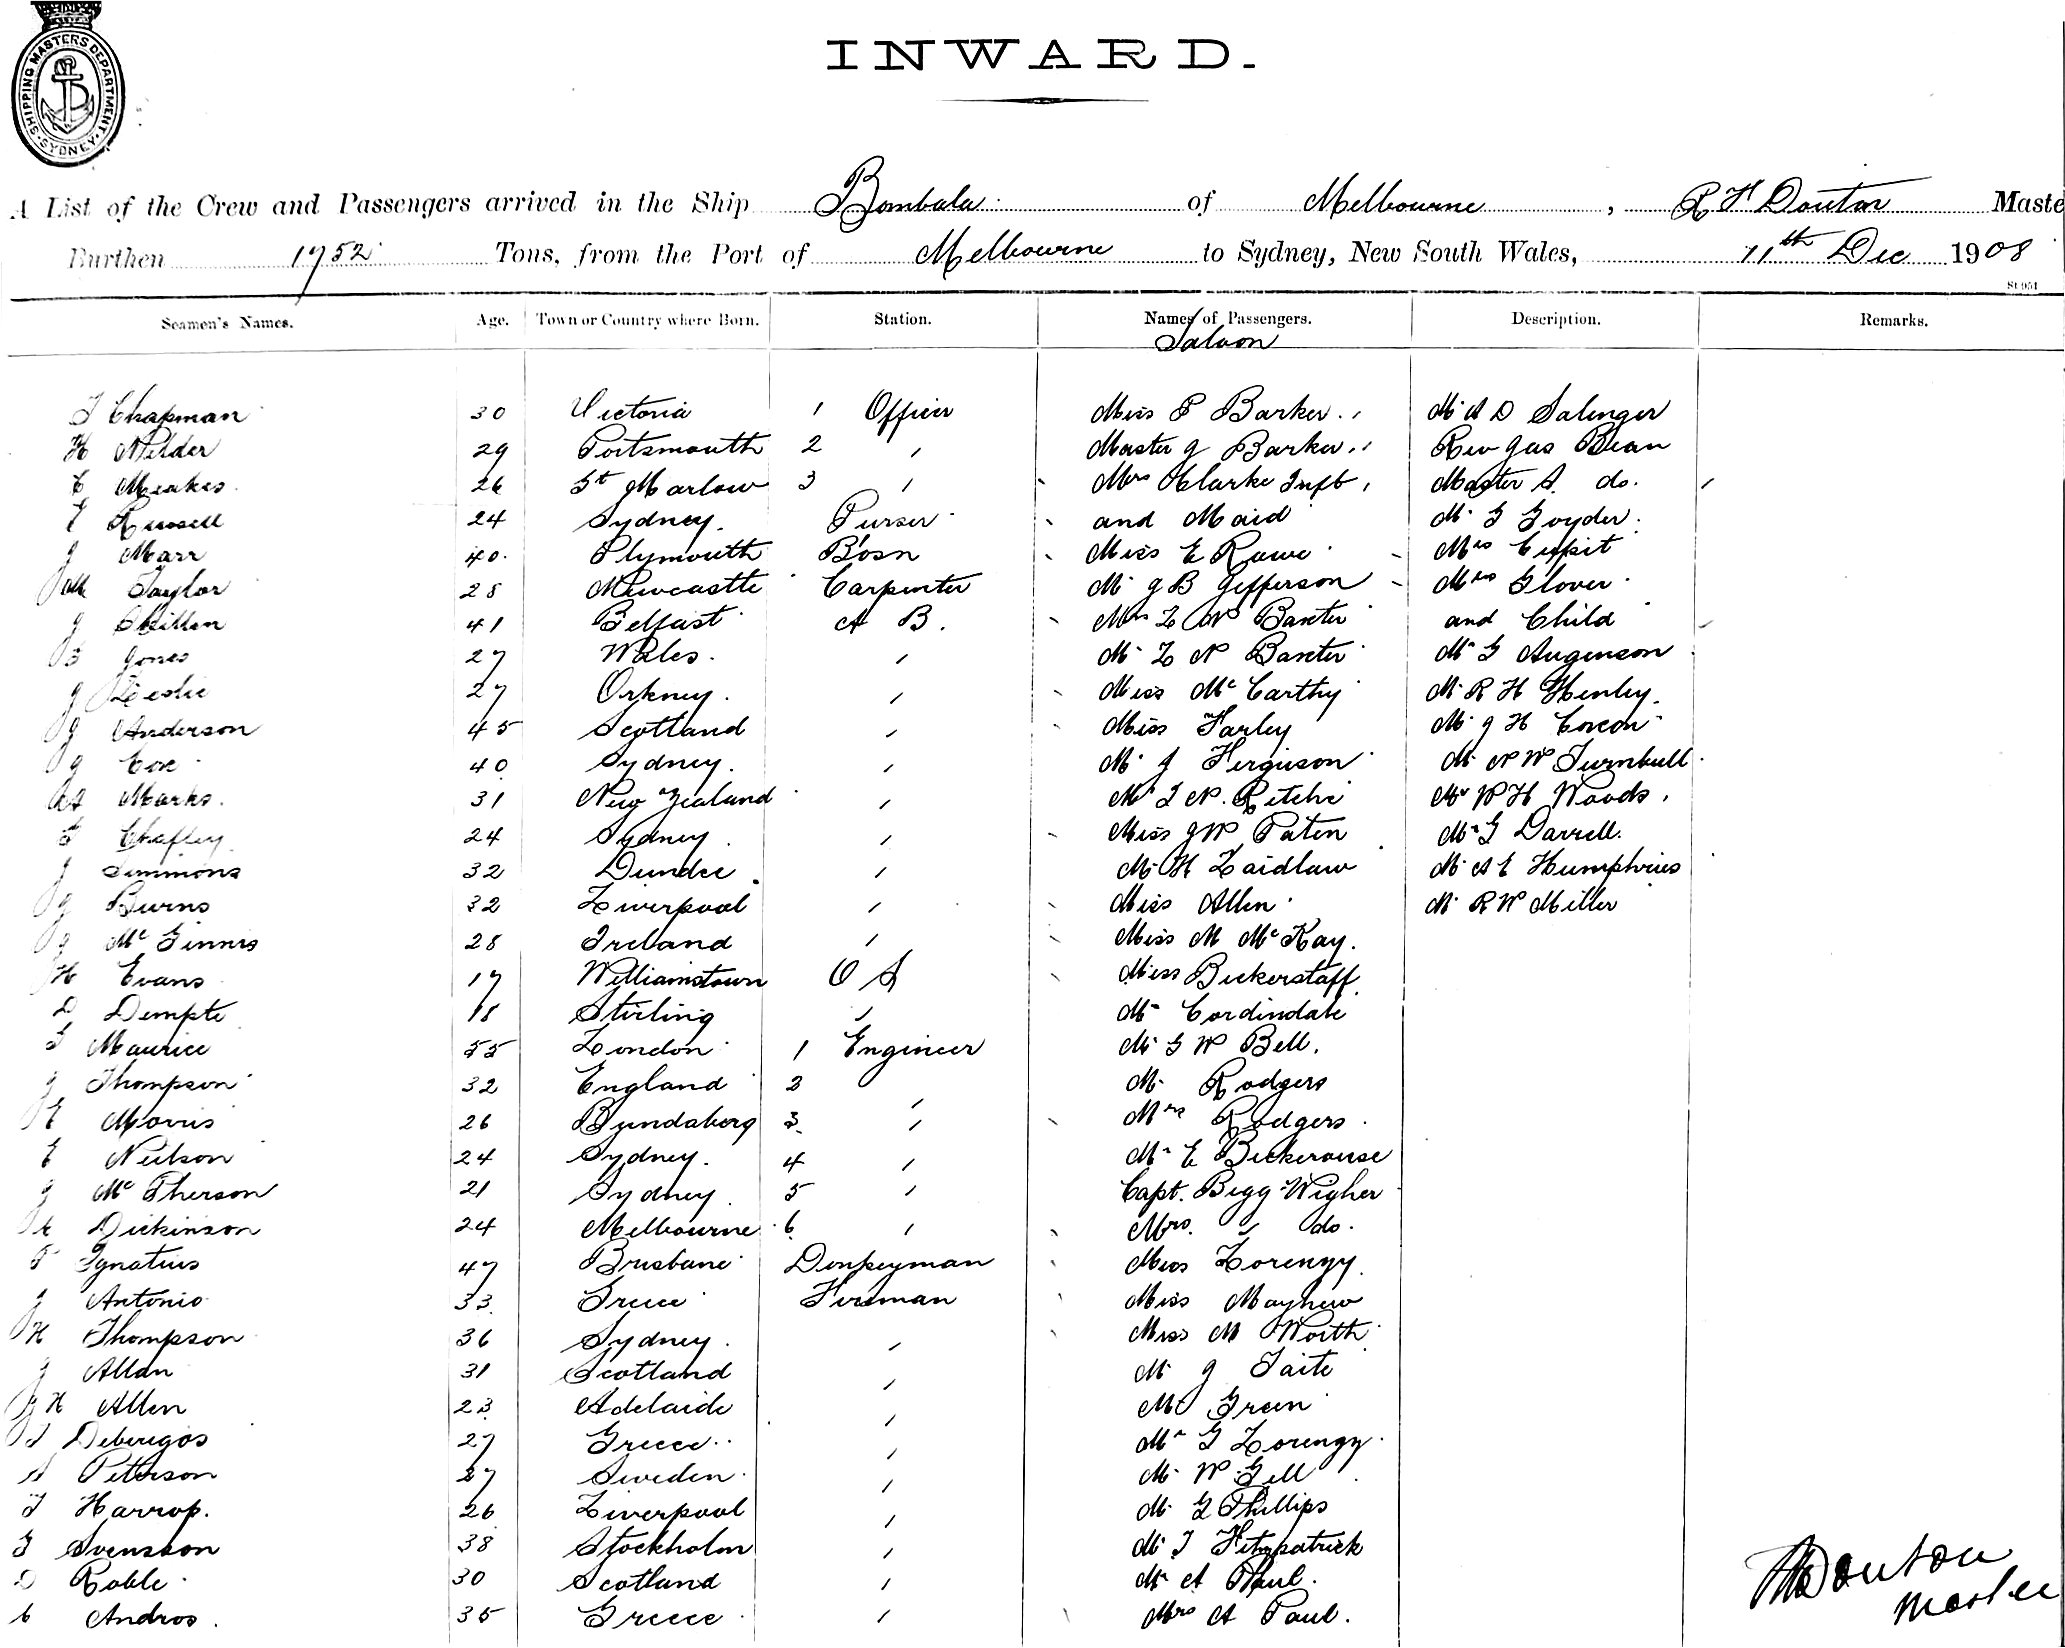 SHIPPING MASTERS DEPARTMENT · SYDNEY ·
INWARD.
A List of the Crew and Passengers arrived in the Ship Bombala of Melbourne, R H Douton Maste
Burthen 1952 Tons, from the Port of Melbourne to Sydney, New South Wales, 11th Dec 1908
St 051
Seamen's Names. Age. Town or Country where Born. Station. Names of Passengers. Description. Remarks.
Saloon
T Chapman 30 Victoria 1 Officer Miss P Barker Mr A D Salenger
H Wilder 29 Portsmouth 2 " Master J Barker Rev Jas Bean
E Meakes 26 St Marlow 3 " Mrs Clarke Inft Master A. do.
E Russell 24 Sydney. Purser and Maid Mr G Goyder
J Marr 40 Plymouth Bosn Miss E Rowe Mrs Cuppit
Wm Taylor 28 Newcastle Carpenter Mr J B Jefferson Mrs Glover
J Skillen 41 Belfast A B. Mrs L W Baxter and Child
B Jones 27 Wales. " Mr L N Baxter Mr G Augenson
J Leslie 27 Orkney. " Miss McCarthy Mr R H Henley.
J Anderson 45 Scotland " Miss Farley Mr J H Coxon
J Cox 40 Sydney. " Mr J Ferguson Mr N W Turnbull
At Marks. 31 New Zealand " Mr T N. Ritchi Mr W H Woods
F Chafley 24 Sydney " Miss J W Paten Mr G Darrell.
J Simmons 32 Dundee " Mr H Laidlaw Mr A E Humphries
J Burns 32 Liverpool " Miss Allen Mr R W Miller
J McGinnis 28 Ireland " Miss M McKay.
H Evans 17 Williamstown O S Miss Bickerstaff
D Dempte 18 Stirling " Mr Cordindale
G Maurice 55 London 1 Engineer Mr G W Bell.
J Thompson 32 England 2 " Mr Rodgers
E Morris 26 Bundaberg 3 " Mrs Rodgers
E Neilson 24 Sydney. 4 " Mr E Bickerouse
J McPherson 21 Sydney 5 " Capt. Bigg-Wigher
A Dickinson 24 Melbourne 6 " Mrs. " do.
F Ignatius 47 Brisbane Donkeyman Miss Lorengy
J Antonio 33 Greece Fireman Miss Mayhew
H Thompson 36 Sydney. " Miss M Worth
J Allan 31 Scotland " Mr J Taite
J H Allen 23 Adelaide " Mr Green
J Deberigos 27 Greece " Mr G Lorengy
A Peterson 27 Sweden " Mr W Gell
T Harrop. 26 Liverpool " Mr G Phillips
G Svensson 38 Stockholm " Mr T Fitzpatrick
D Roble 30 Scotland " Mr A Paul.
C Andros. 35 Greece " Mrs A Paul.
R H Douton
Master